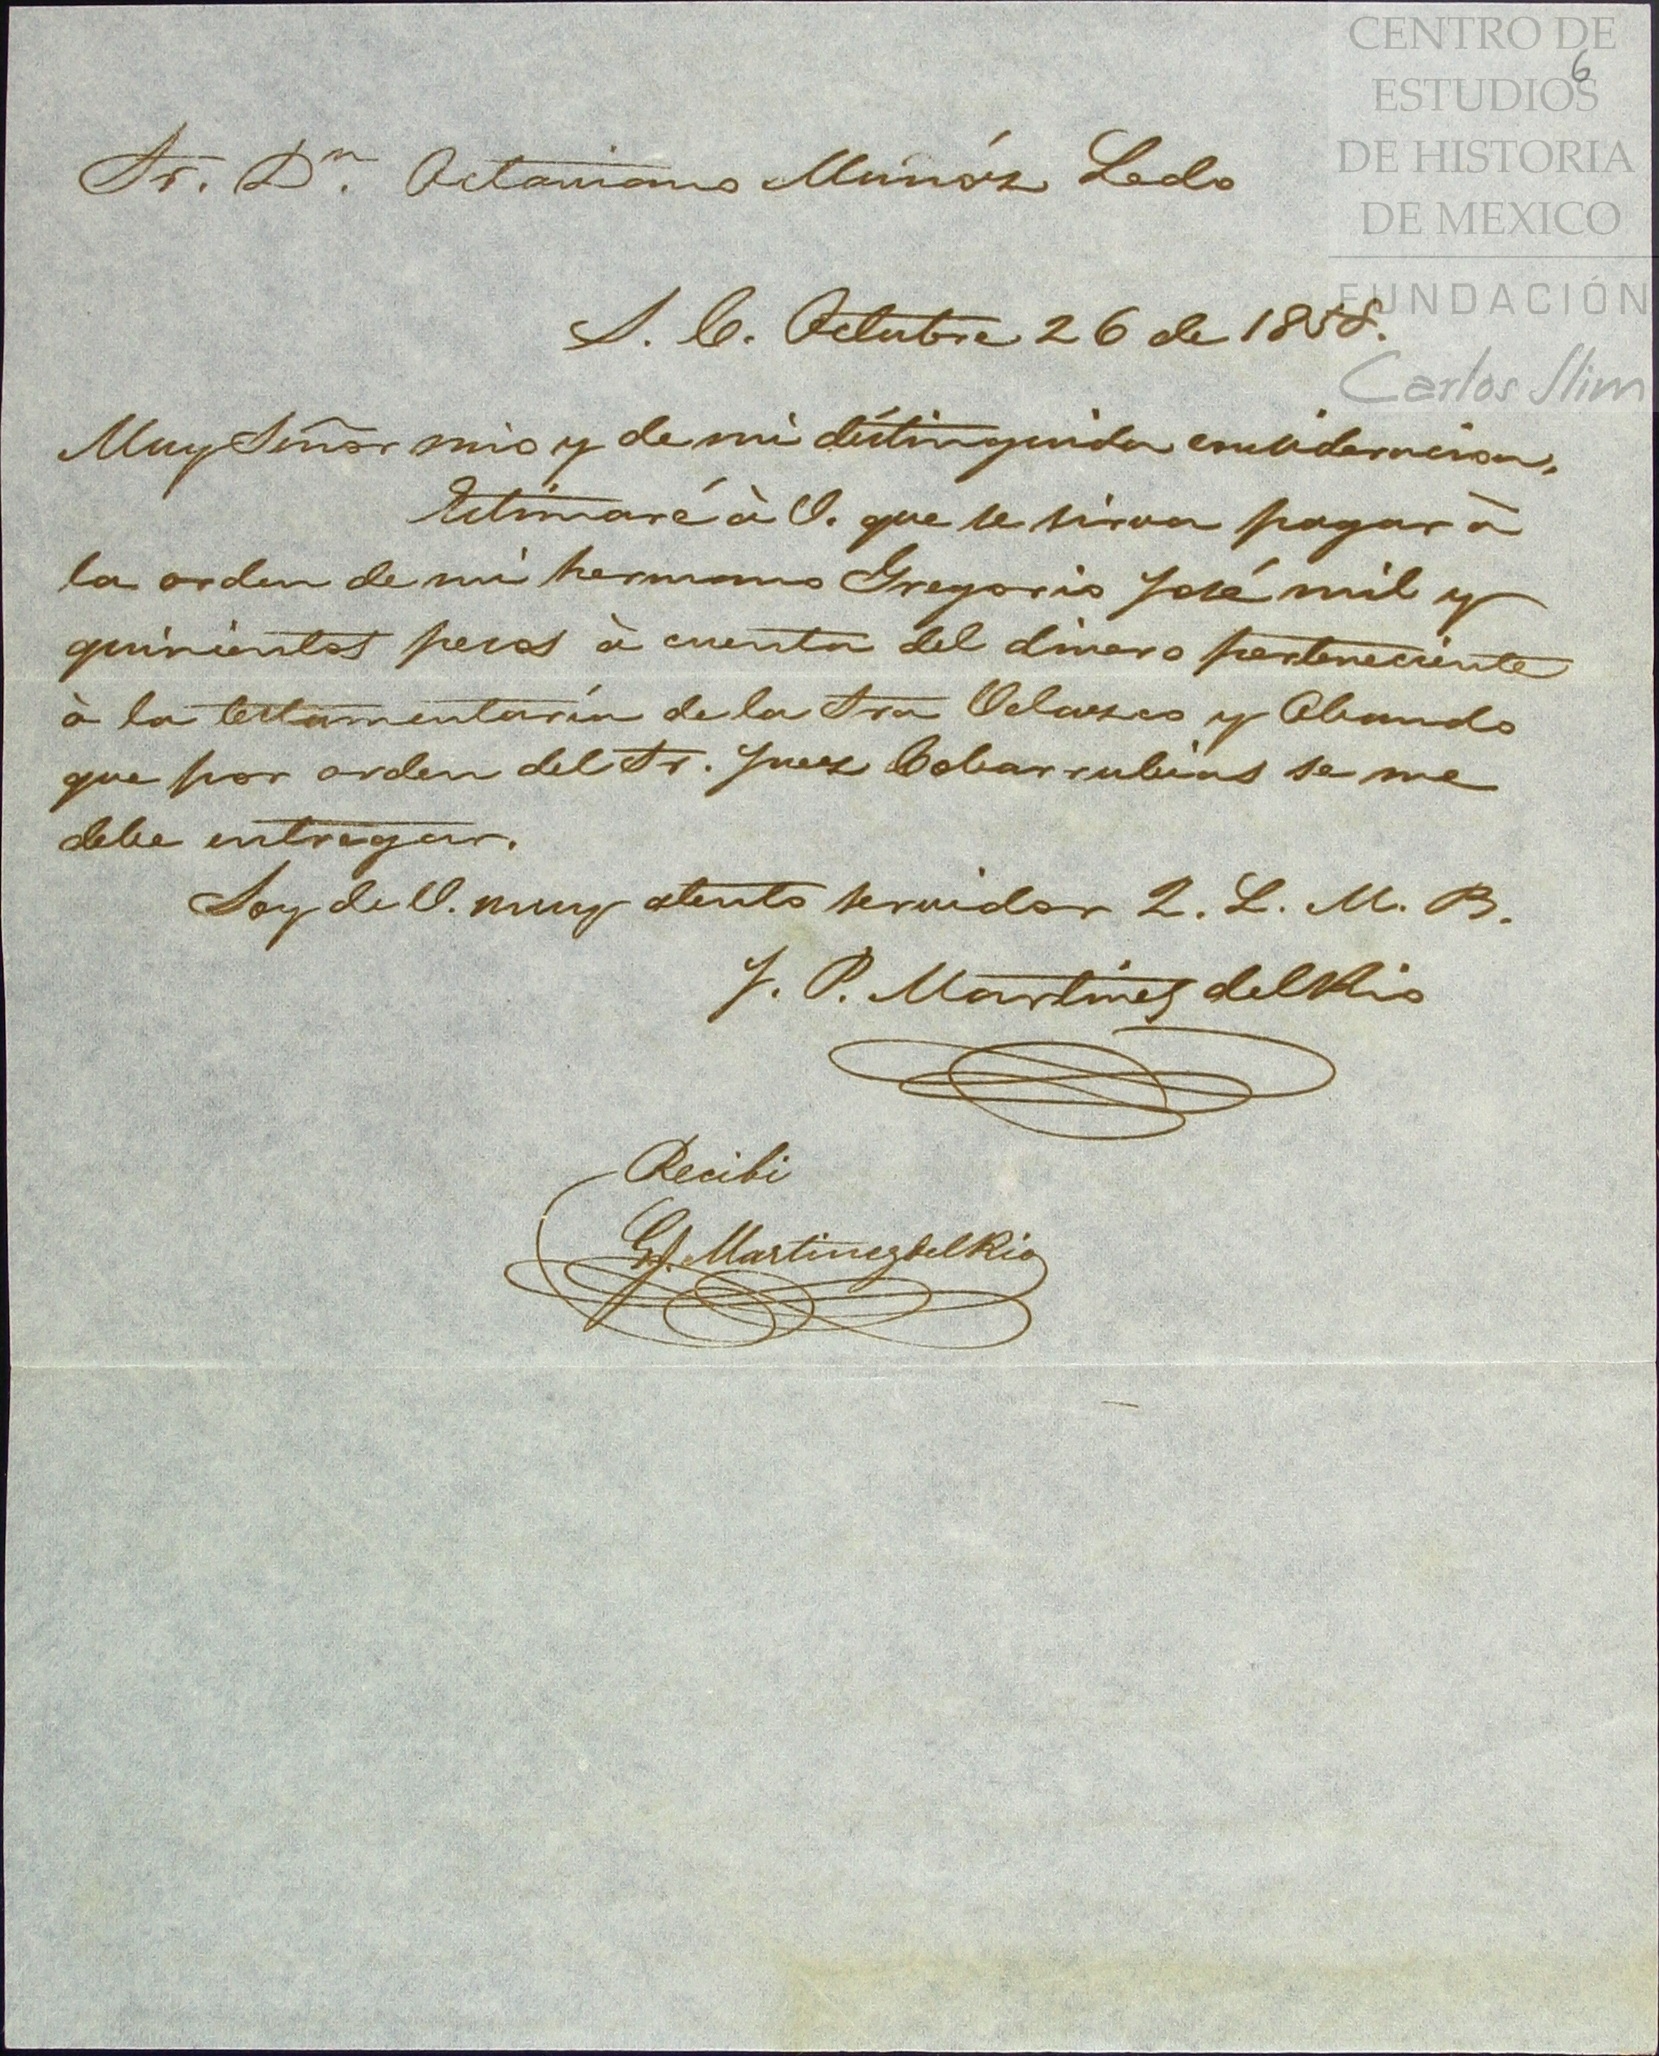 CENTRO DE
ESTUDIOS
DE HISTORIA
DE MEXICO
FUNDACIÓN
Carlos Slim
6
Sr. Dn. Octaviano Múñóz Ledo
S. C. Octubre 26 de 1858.
Muy Señor mio y de mi distinguida consideracion,
Estimaré à V. que se sirva pagar à
la orden de mi hermano Gregorio José mil y
quinientos pesos à cuenta del dinero perteneciente
à la testamentaría de la Sra Velazco y Obando
que por orden del Sr. Juez Cobarrubias se me
debe entregar.
Soy de V. muy atento servidor Q. L. M. B.
J. P. Martinez del Rio
Recibi
G. J. Martinez del Rio